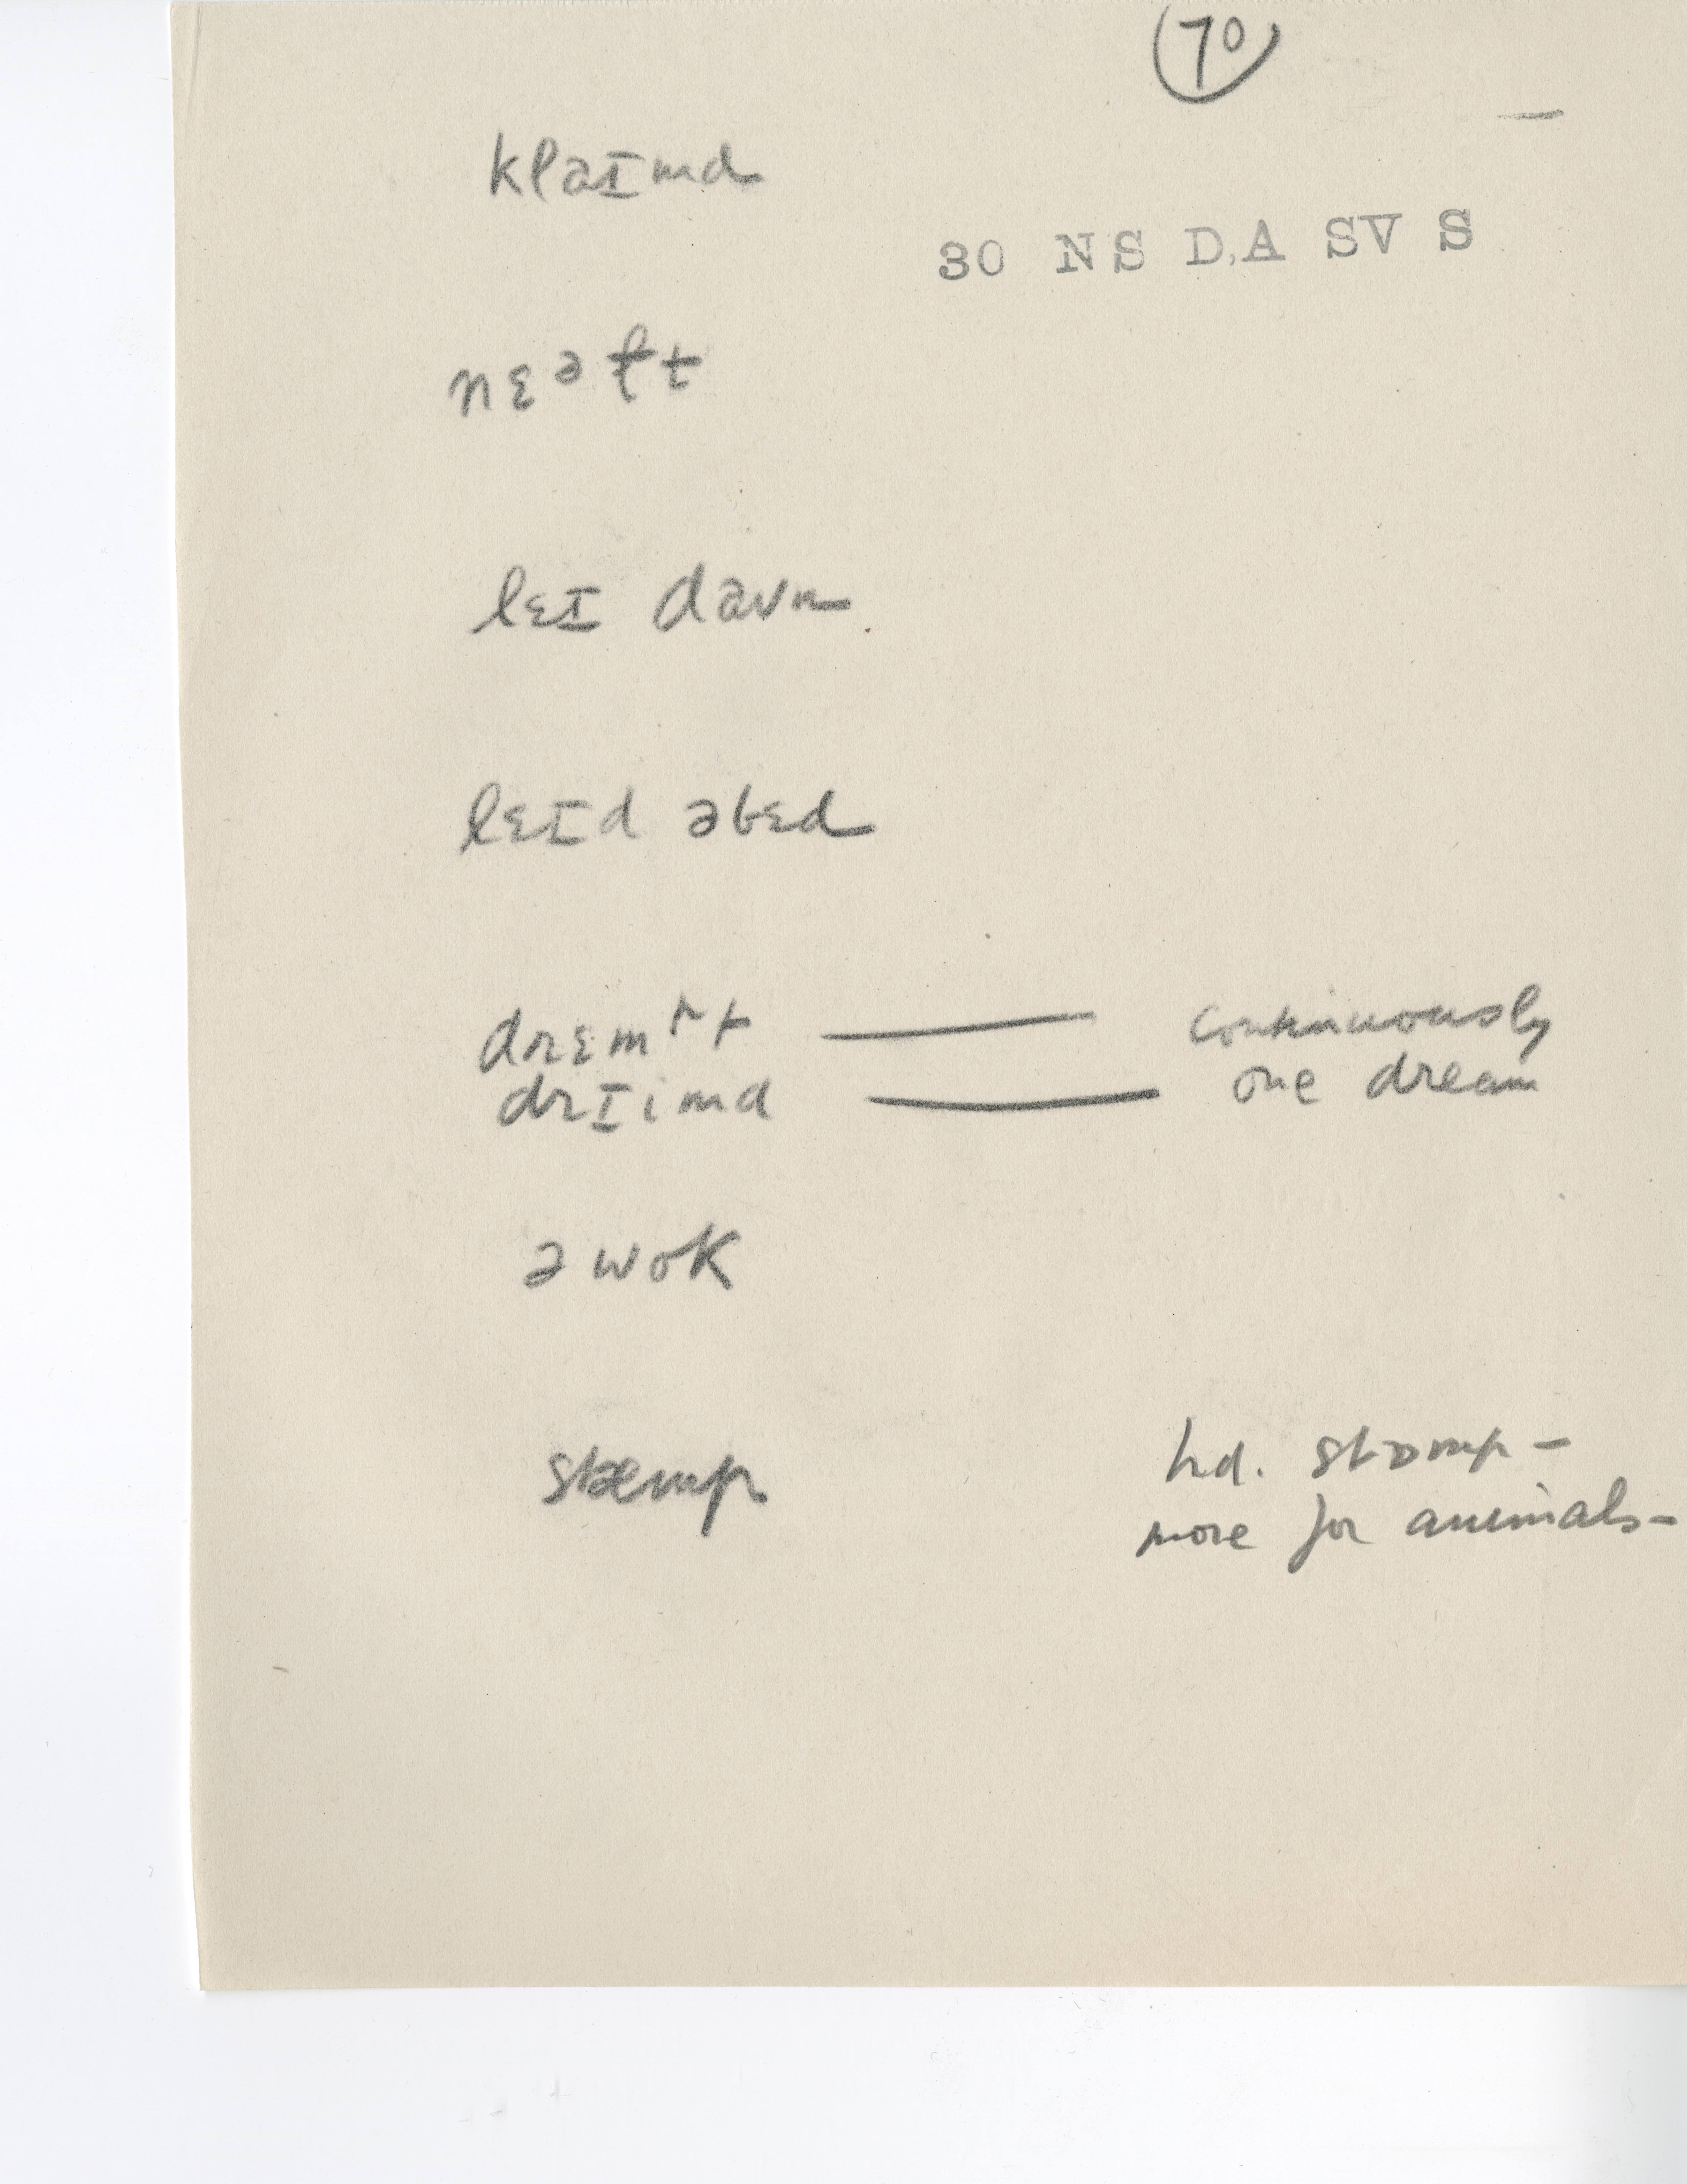 70
klaɪmd
30 NS D.A SV S
nɛəɫt
lɛɪ daʊn
lɛɪd əbɛd
drɛmᵖt — continuously
drɪimd — one dream
əwok
stæmp hd. stɒmp –
more for animals –